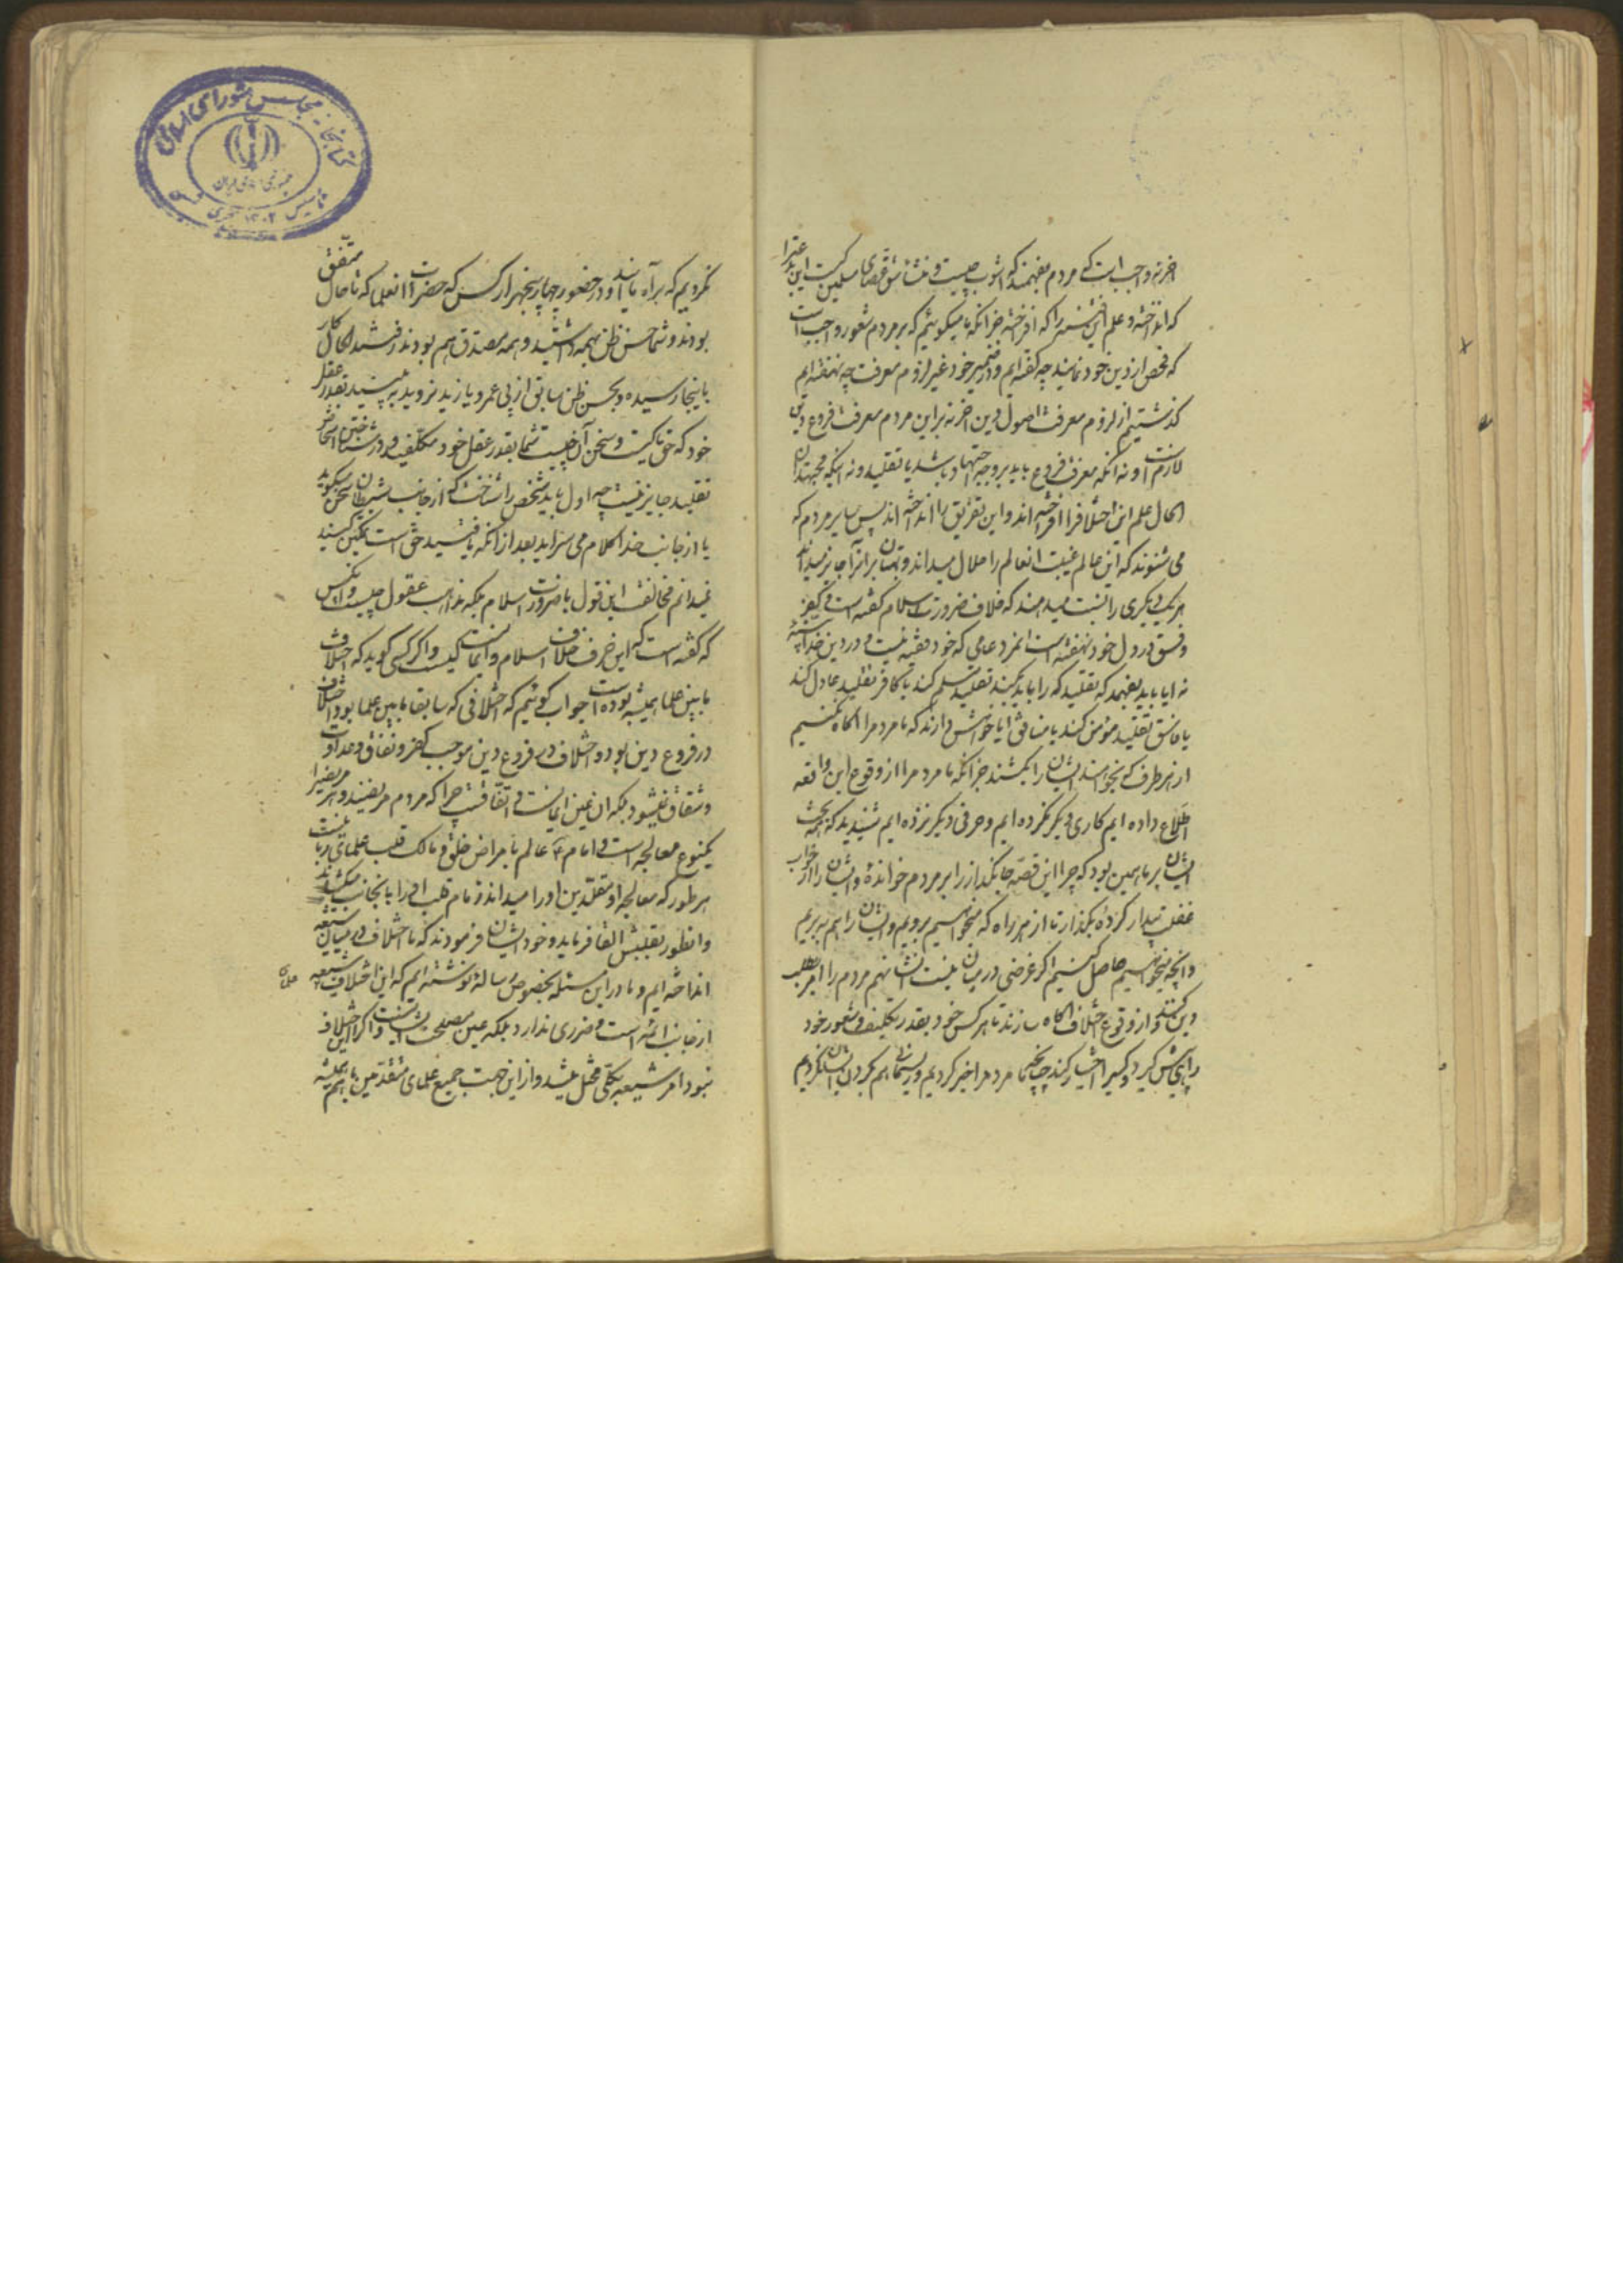 اخر نه واجب است که مردم بفهمند که آشوب چیست و منشأ شق عصای مسلمین کیست این بذر
که انداخته و علم این فتنه را که افراخته جز آنکه ما میگوئیم که بر مردم شعور واجب است
که فحص از دین خود نمایند چه گفته ایم و در ضمیر خود غیر لزوم معرفت چه نهفته ایم
گذشتیم از لزوم معرفت اصول دین اخر نه بر این مردم معرفت فروع دین
لازمست و نه آنکه معرفت فروع باید بر وجه اجتهاد باشد یا تقلید و نه اینکه مجتهدان
الحال علم این اختلاف را افراخته اند و این تفریق را انداخته اند پس سایر مردم که
می شنوند که این عالم غیبت آن عالم را حلال میداند و بهتان بر او را جایز میداند
هر یک دیگری را نسبت میدهند که خلاف ضرورت اسلام گفته است و کفر
و فسق در دل خود نهفته است انمرد عامی که خود فقیه نیست و در دین خدا
نه ایا باید بفهمد که تقلید که را باید بکند تقلید مسلم کند یا کافر تقلید عادل کند
یا فاسق تقلید مؤمن کند یا منافق ایا خواهش دارند که ما مردم را اگاه نکنیم
از هر طرف که بخواهند ایشان را بکشند جز آنکه ما مردم را از وقوع این واقعه
اطلاع داده ایم کاری دیگر نکرده ایم و حرفی دیگر نزده ایم شنیدید که همه بحث
ایشان بر ما همین بود که چرا این قصه جانگداز را بر مردم خوانده و ایشان را از خواب
غفلت بیدار کرده بگذار تا از هر راه که میخواهیم برویم و ایشان را هم ببریم
و آنچه میخواهیم حاصل کنیم اگر غرضی در میان نیست انشا هم مردم را امر بطلب
دین کنند و از وقوع اختلاف اگاه سازند تا هر کس خود بقدر تکلیف و شعور خود
راهی پیش گیرد و کیرا اختیار کند چنانچه ما مردم را خبر کردیم و ریسمان هم بگردن ایشان نکردیم
نکردیم که براه بیایند و در حضور چهار پنجهزار کس که حضرات انعلما که تا حال متفق
بودند و شما حسن ظن بهمه داشتید و همه مصدق هم بودند رفته رفته کار
باینجا رسیده و بحسن ظن سابق از پی عمرو یا زید نروید به بینید بقدر عقل
خود که حق با کیست و سخن آن چیست شما بقدر عقل خود مکلفید و در شناختن اشخاص
تقلید جایز نیست چه اول باید شخص را شناخت که از جانب شیطان سخن میگوید
یا از جانب خدا کلام می سراید بعد از آنکه یافتید حق است تمکین کنید
نمیدانم مخالفت این قول با ضرورت اسلام بلکه مذاهب عقول چیست و انکس
که گفته است که این حرف خلاف اسلام و ایمانست کیست و اگر کسی گوید که اختلاف
ما بین علما همیشه بوده است جواب گوئیم که اختلافی که سابقا ما بین علما بود اختلاف
در فروع دین بود و اختلاف در فروع دین موجب کفر و نفاق و عداوت
و شقاق نمیشود بلکه ان عین ایمانست و اتفاقست چرا که مردم مریضند و هر مریضی را
یکنوع معالجه است و امام ع عالم بامراض خلق و مالک قلب علمای ربانیست
هر طور که معالجه او و مقلدین او را میداند زمام قلب او را بانجانب میکشد
و انطور بقلبش القا فرماید و خود ایشان فرمودند که ما اختلاف در میان شیعه
انداخته ایم و ما در این مسئله بخصوص رساله نوشته ایم که این اختلاف شیعه
از جانب ائمه است و ضرری ندارد بلکه عین مصلحت ایشانست و اگر این اختلاف
نبود امر شیعه بکلی مختل میشد و از این جهت جمیع علمای متقدمین با هم همیشه
کتابخانه مجلس شورای اسلامی
جمهوری اسلامی ایران